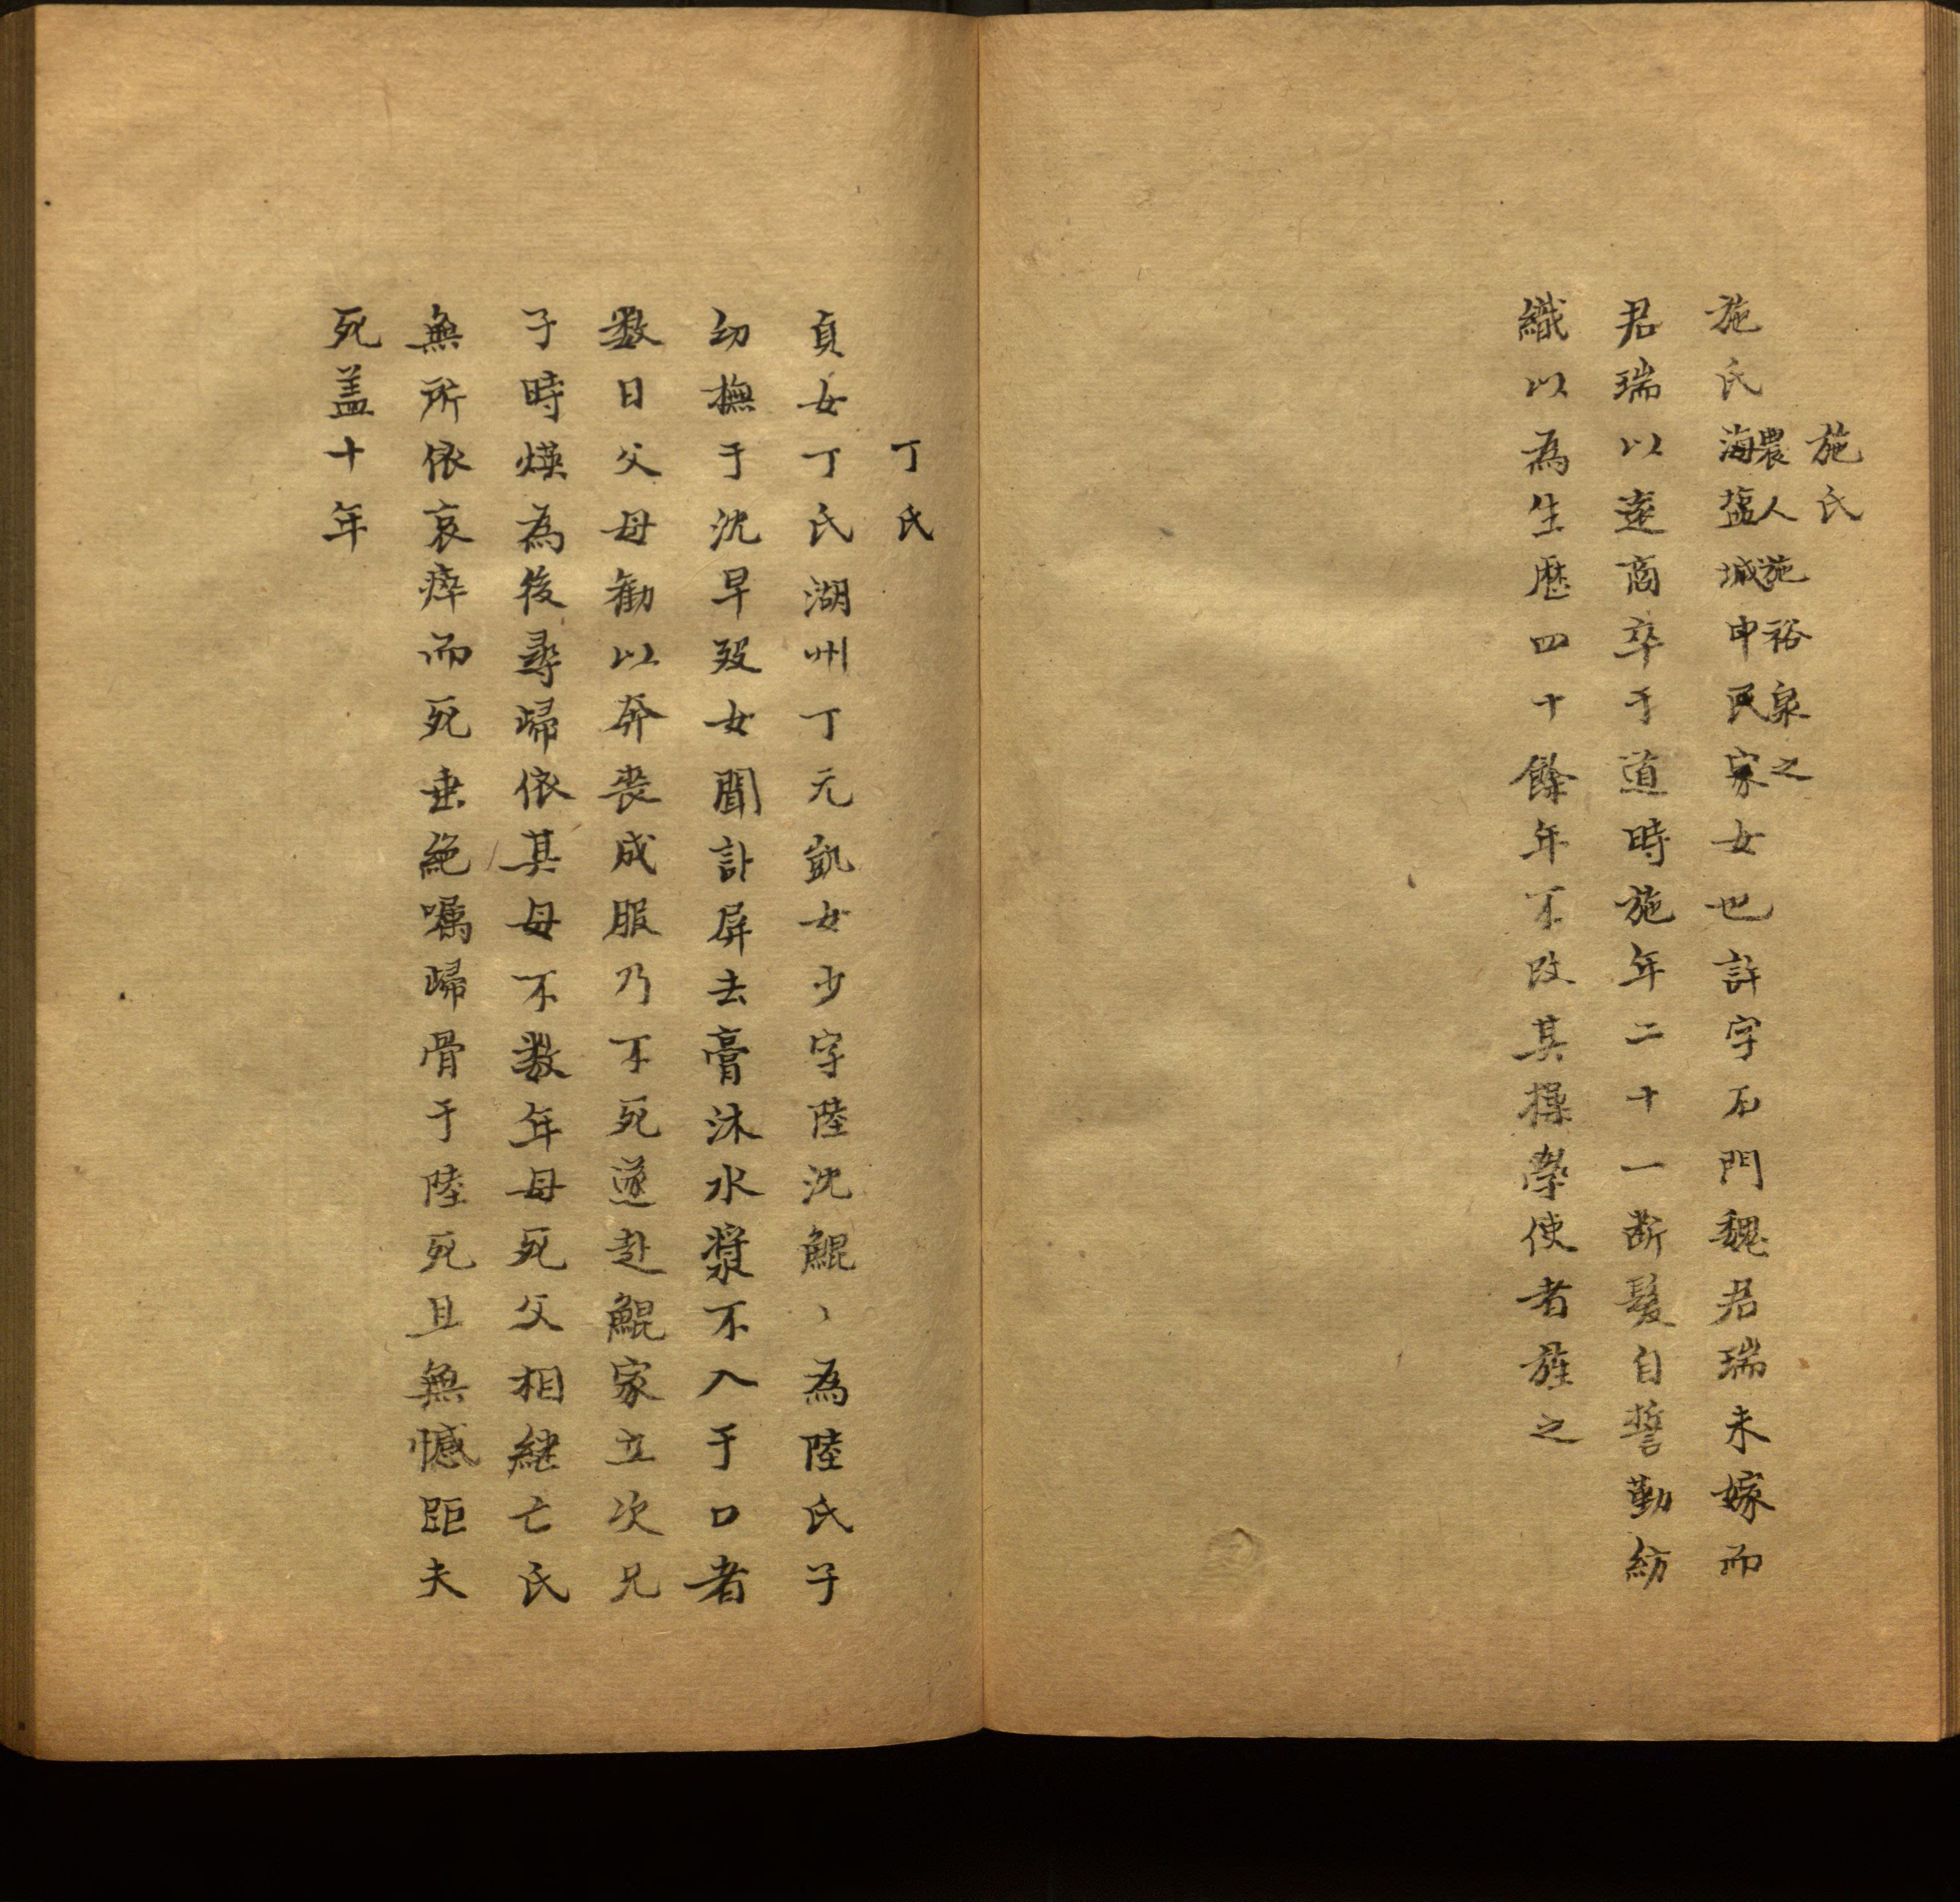 施氏
農人施裕泉之
施氏海塩城中民家女也許字石門魏君瑞未嫁而
君瑞以遠商卒于道時施年二十一断髮自誓勤紡
織以為生歴四十餘年不改其操學使者旌之
丁氏
貞女丁氏湖州丁元凱女少字陸沈鯤、為陸氏子
幼撫于沈早殁女聞訃屏去膏沐水漿不入于口者
数日父母勸以奔喪成服乃不死遂赴鯤家立次兄
子時煐為後尋歸依其母不数年母死父相継亡氏
無所依哀瘁而死垂絶嘱歸骨于陸死且無憾距夫
死盖十年